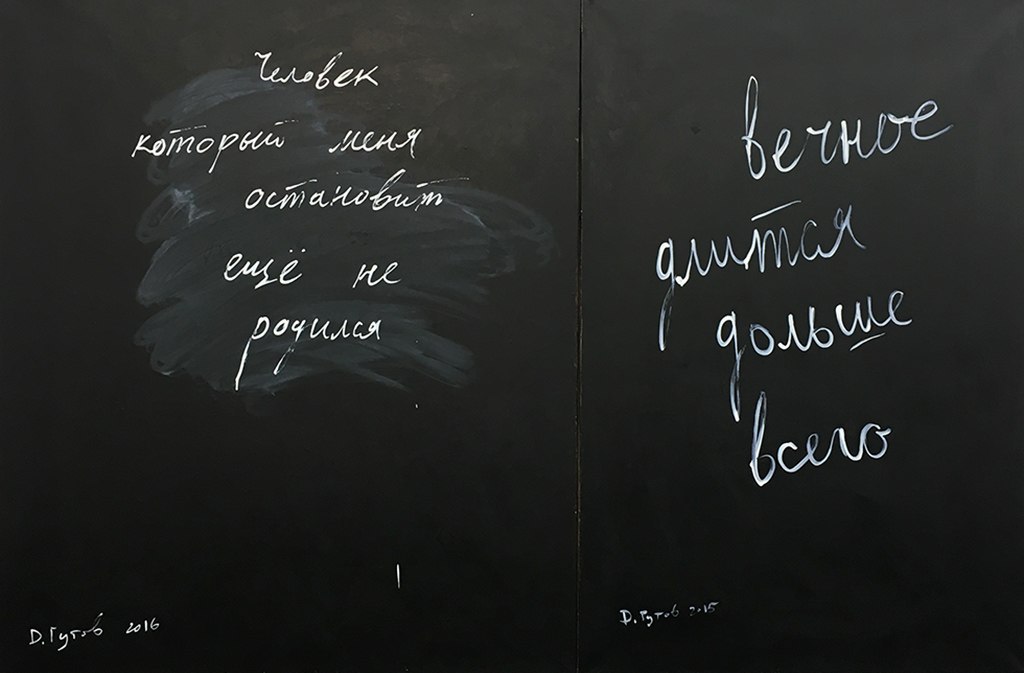 Человек
который меня
остановит
ещё не
родился
Д. Гутов 2016
вечное
длится
дольше
всего
Д. Гутов 2015